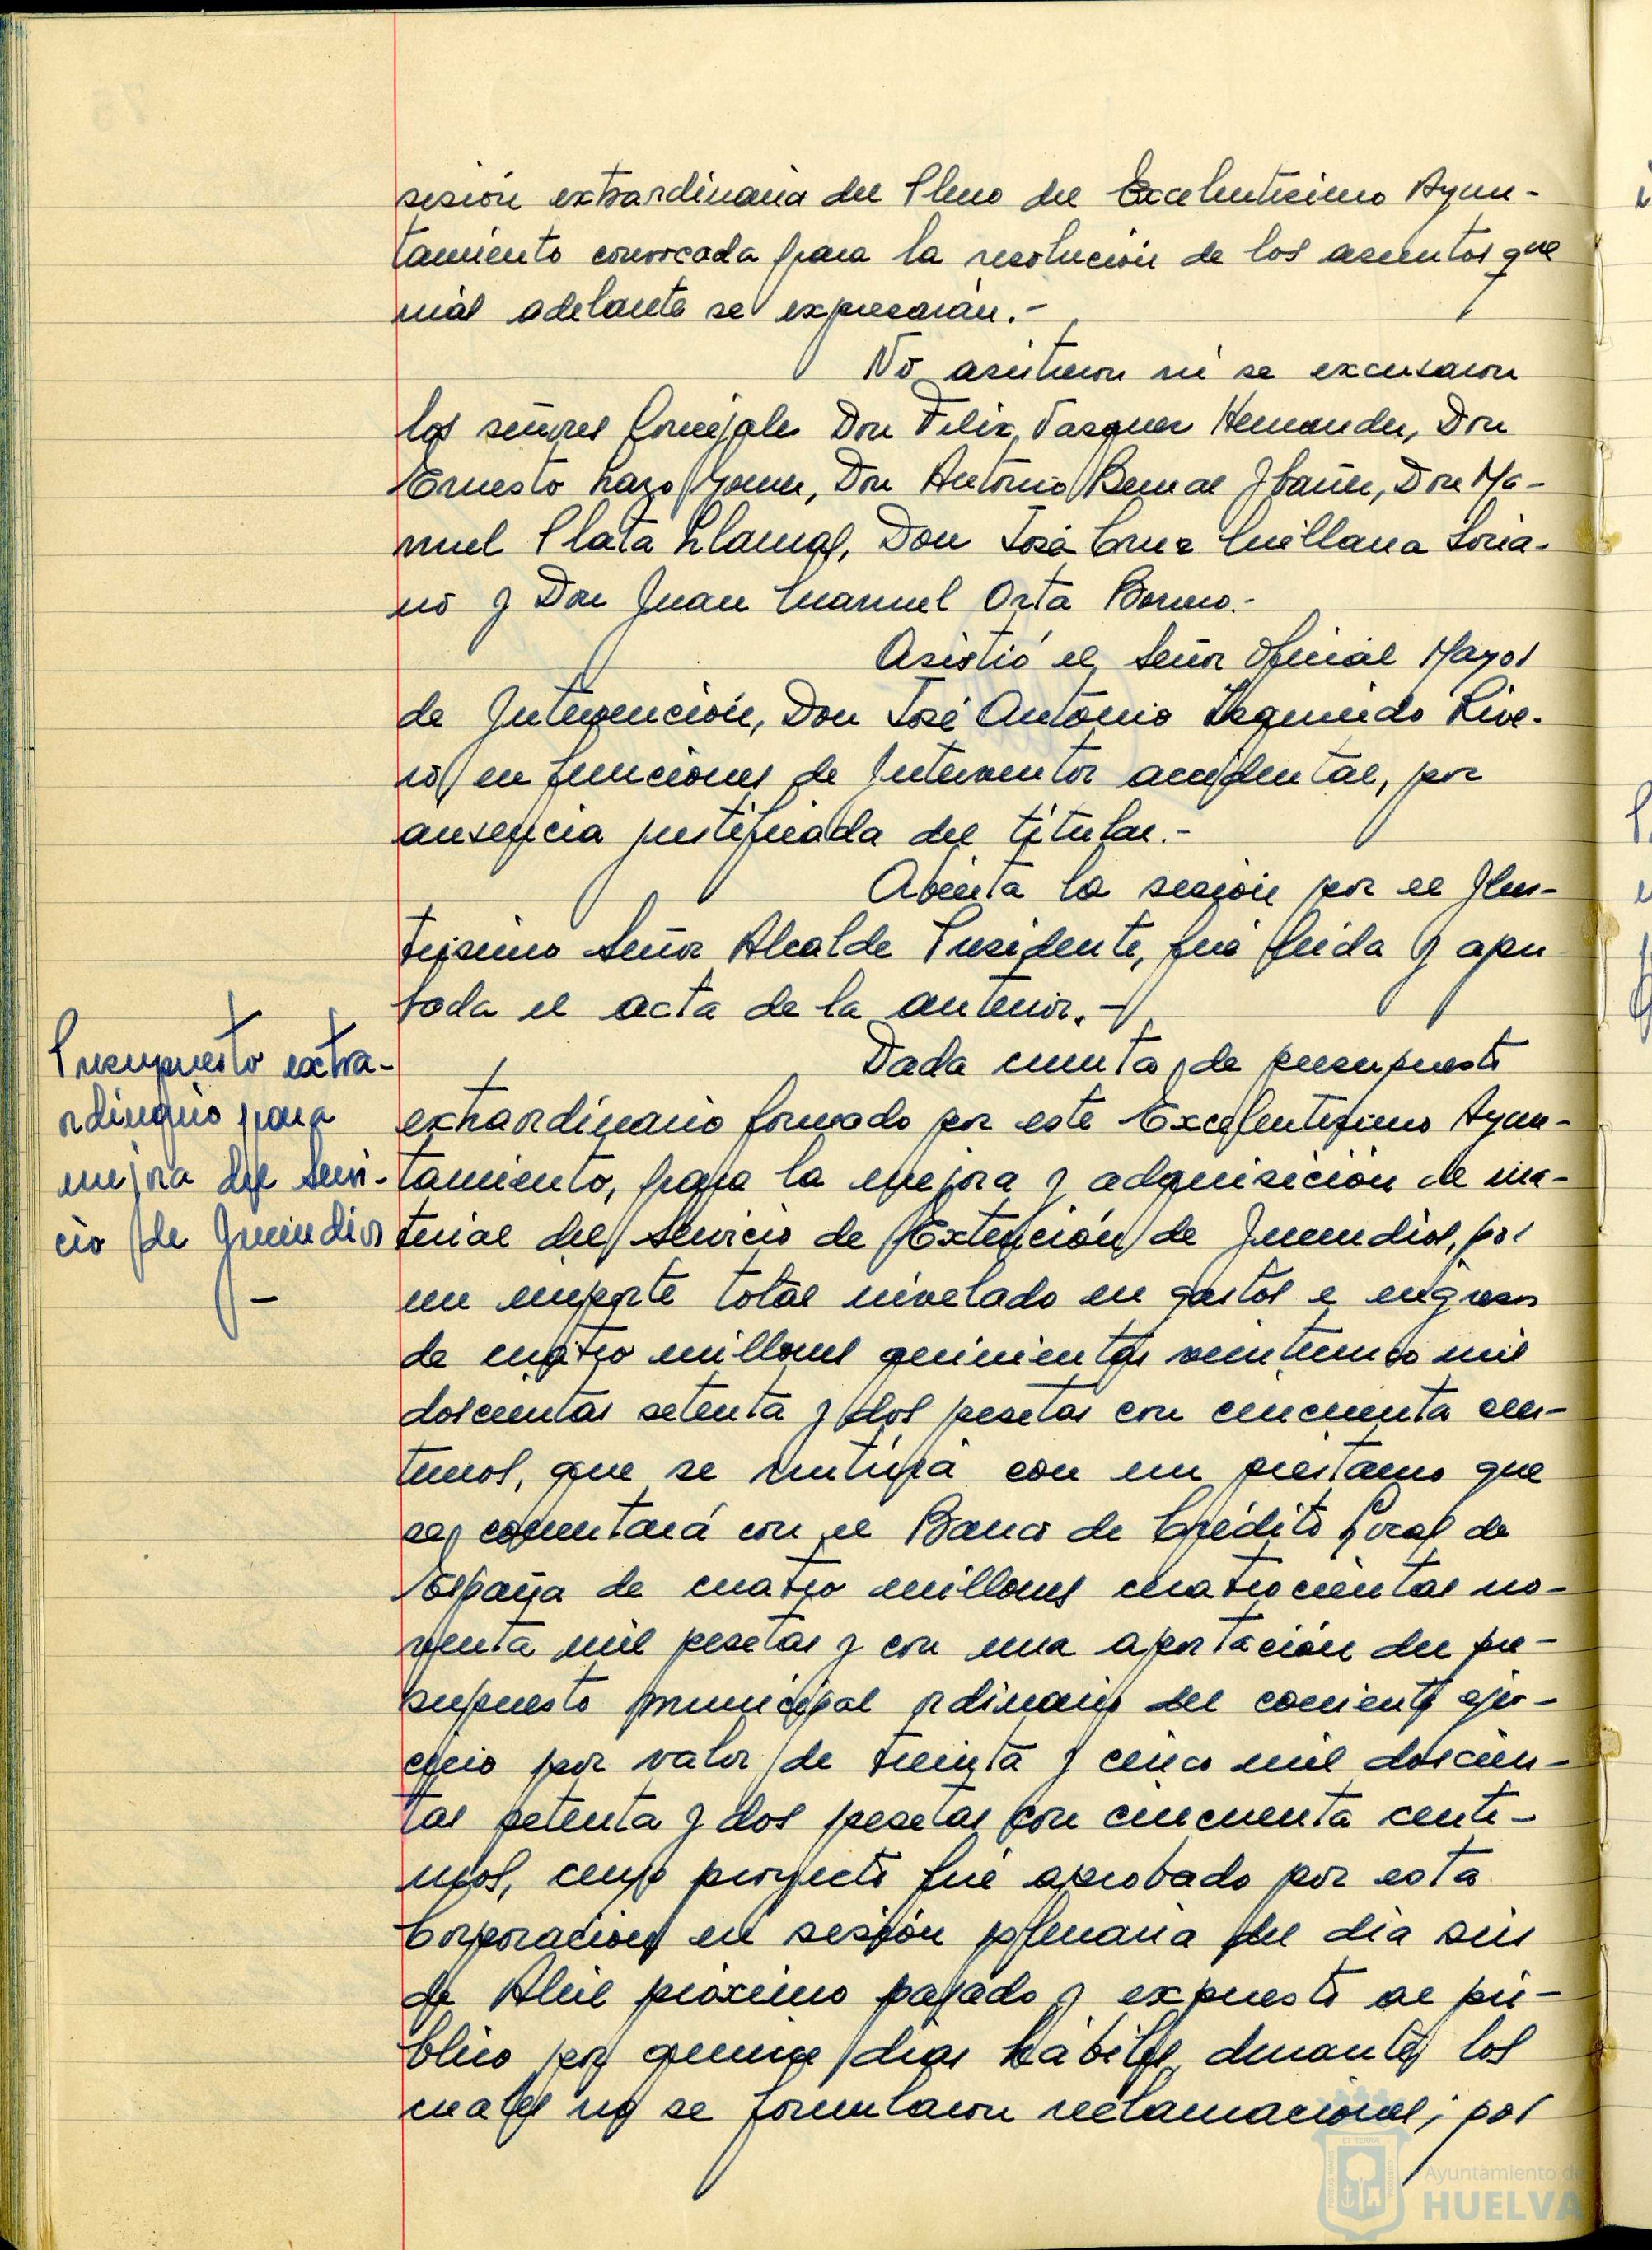 sesión extraordinaria del Pleno del Excelentísimo Ayun-
tamiento convocada para la resolución de los asuntos que
más adelante se expresarán.-
No asistieron ni se excusaron
los señores Concejales Don Felix Vazquez Hernandez, Don
Ernesto Lazo Gomez, Don Antonio Bernal Ibañez, Don Ma-
nuel Plata Llamas, Don José Cruz Quillana Soria-
no y Don Juan Manuel Orta Borrero.-
Asistió el Señor Oficial Mayor
de Intervención, Don José Antonio Izquierdo Rive-
ro, en funciones de Interventor accidental, por
ausencia justificada del titular.-
Abierta la sesión por el Ilus-
trísimo Señor Alcalde Presidente, fué leida y apro
bada el acta de la anterior.-
Presupuesto extra-
ordinario para
mejora del Servi-
cio de Incendios
-
Dada cuenta de presupuesto
extraordinario formado por este Excelentísimo Ayun-
tamiento, para la mejora y adquisición de ma-
terial del Servicio de Extención de Incendios, por
un importe total nivelado en gastos e ingresos
de cuatro millones quinientas veinticinco mil
doscientas setenta y dos pesetas con cincuenta cén-
timos, que se nutrirá con un préstamo que
se concertará con el Banco de Crédito Local de
España de cuatro millones cuatrocientas no-
venta mil pesetas y con una aportación del pre-
supuesto municipal ordinario del corriente ejer-
cicio por valor de treinta y cinco mil doscien-
tas setenta y dos pesetas con cincuenta cénti-
mos, cuyo proyecto fué aprobado por esta
Corporación en sesión plenaria del día seis
de Abril próximo pasado y expuesto al pú-
blico por quince días hábiles, durante los
cuales no se formularon reclamaciones; por
Ayuntamiento de
HUELVA